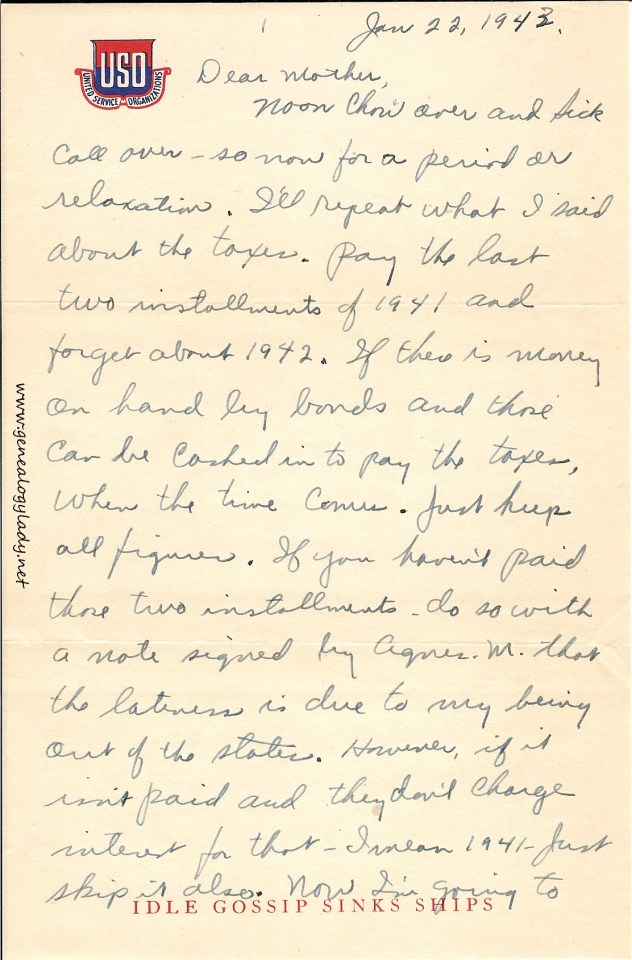 1
Jan 22, 1943.
USO
UNITED SERVICE ORGANIZATIONS
Dear Mother,
Noon Chow over and Sick
Call over - so now for a period or
relaxation. I'll repeat what I said
about the taxes. Pay the last
two installments of 1941 and
forget about 1942. If there is money
on hand buy bonds and those
can be cashed in to pay the taxes,
when the time comes. Just keep
all figures. If you haven't paid
those two installments - do so with
a note signed by Agnes. M. that
the lateness is due to my being
out of the states. However, if it
isn't paid and they don't charge
interest for that - I mean 1941 - Just
skip it also. Now I'm going to
IDLE GOSSIP SINKS SHIPS
www.genealogylady.net